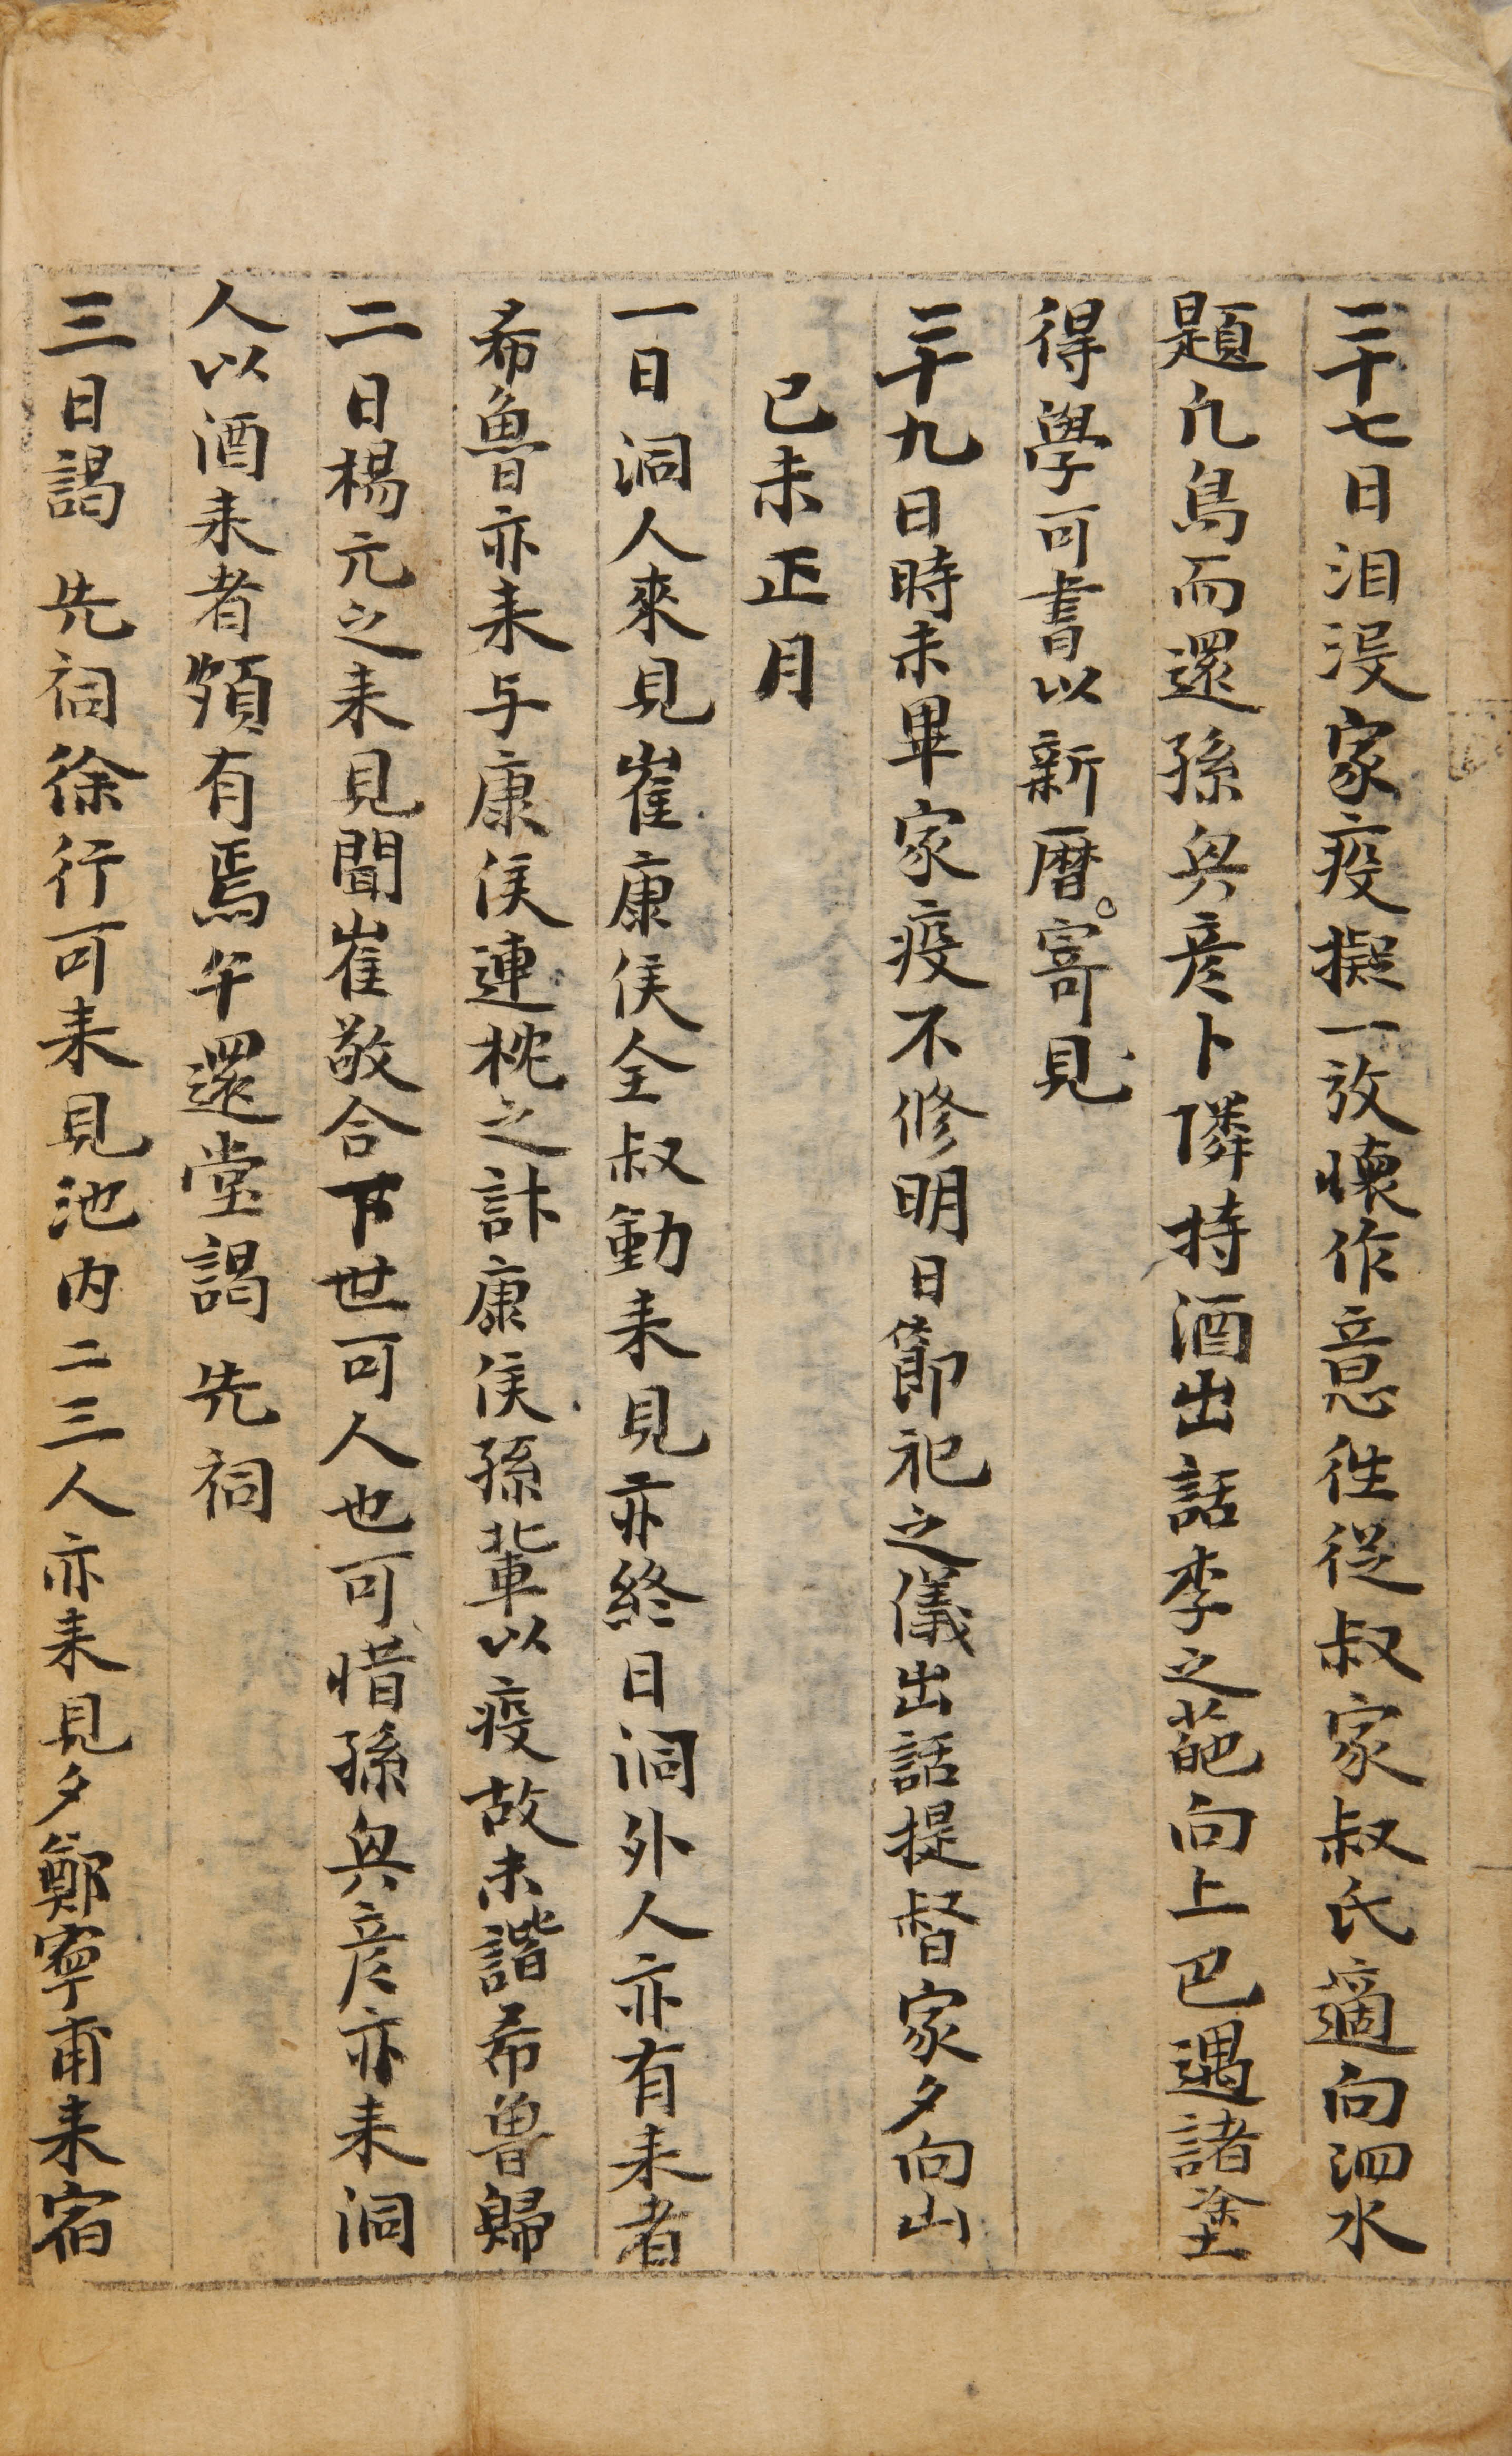 二十七日汨沒家疫擬一放懷作意徃從叔家叔氏適向泗水
題凢鳥而還孫與彦卜隣持酒出話李之葩向上巴遇諸塗
得學可書以新曆寄見
二十九日時未畢家疫不修明日節祀之儀出話提督家夕向山
己未正月
一日洞人來見崔康侯全叔動来見亦終日洞外人亦有来者
希魯亦来与康侯連枕之計康侯孫輩以疫故未諧希魯歸
二日楊元之来見聞崔敬合下世可人也可惜孫與彦亦来洞
人以酒来者頗有焉午還堂謁 先祠
三日謁 先祠徐行可来見池内二三人亦来見夕鄭寧甫来宿